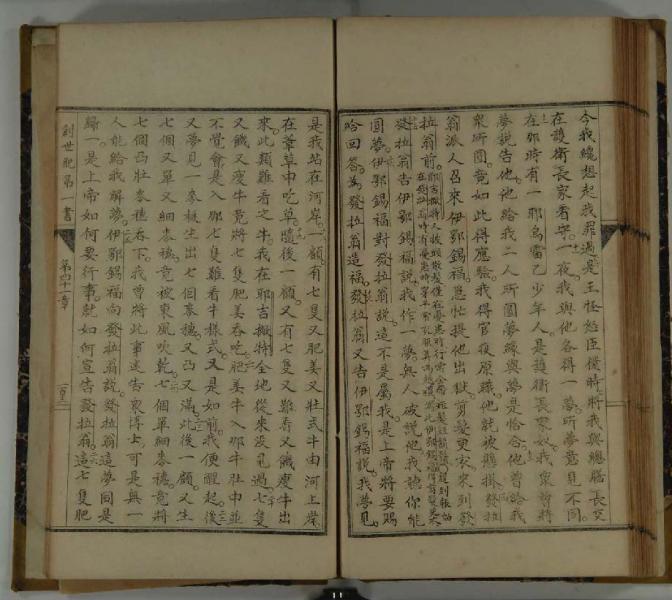 今我纔想起我罪過是王怪怒臣僕時將我與總膳長交
在護衛長家看守一夜我與他各得一夢所夢竟見不同
在那時有一耶烏雷乙少年人是護衛長衆奴我衆暫將
夢說告他他給我二人所圓夢緣與夢是恰合他曾給我
衆所圓竟如此得應驗我得官復原職他就被懸掛發拉
翁派人召來伊鄂錫福急忙提他出獄剪髮更衣來到發
拉翁前
發拉翁告伊鄂錫福說我作一夢無人破說他我聽你能
圓夢伊鄂錫福對發拉翁說這不是屬我是上帝將要賜
給回答為發拉翁造福發拉翁又告伊鄂錫福說我夢見
是我站在河岸一顧有七隻又肥美又壯式牛由河上岸
在葦草中吃草隨後一顧又有七隻又難看又饑瘦牛出
來此類難看之牛我在耶吉撇特全地從來沒見過七隻
又饑又瘦牛竟將七隻肥美吞吃肥美牛入那牛肚中並
不覺會是入那七隻難看牛樣式又是如前我便醒起後
又夢見一麥梃生出七個麥穗又凸又滿此後一顧又生
七個又單又細麥穗竟被東風吹乾七個單細麥穗竟將
七個凸壯麥穗吞下我曾將此事述告衆博士可是無一
人能給我解夢伊鄂錫福向發拉翁說發拉翁這夢同是
歸一是上帝如何要行事就如何宣告發拉翁這七隻肥
創世記第一書
第四十一章